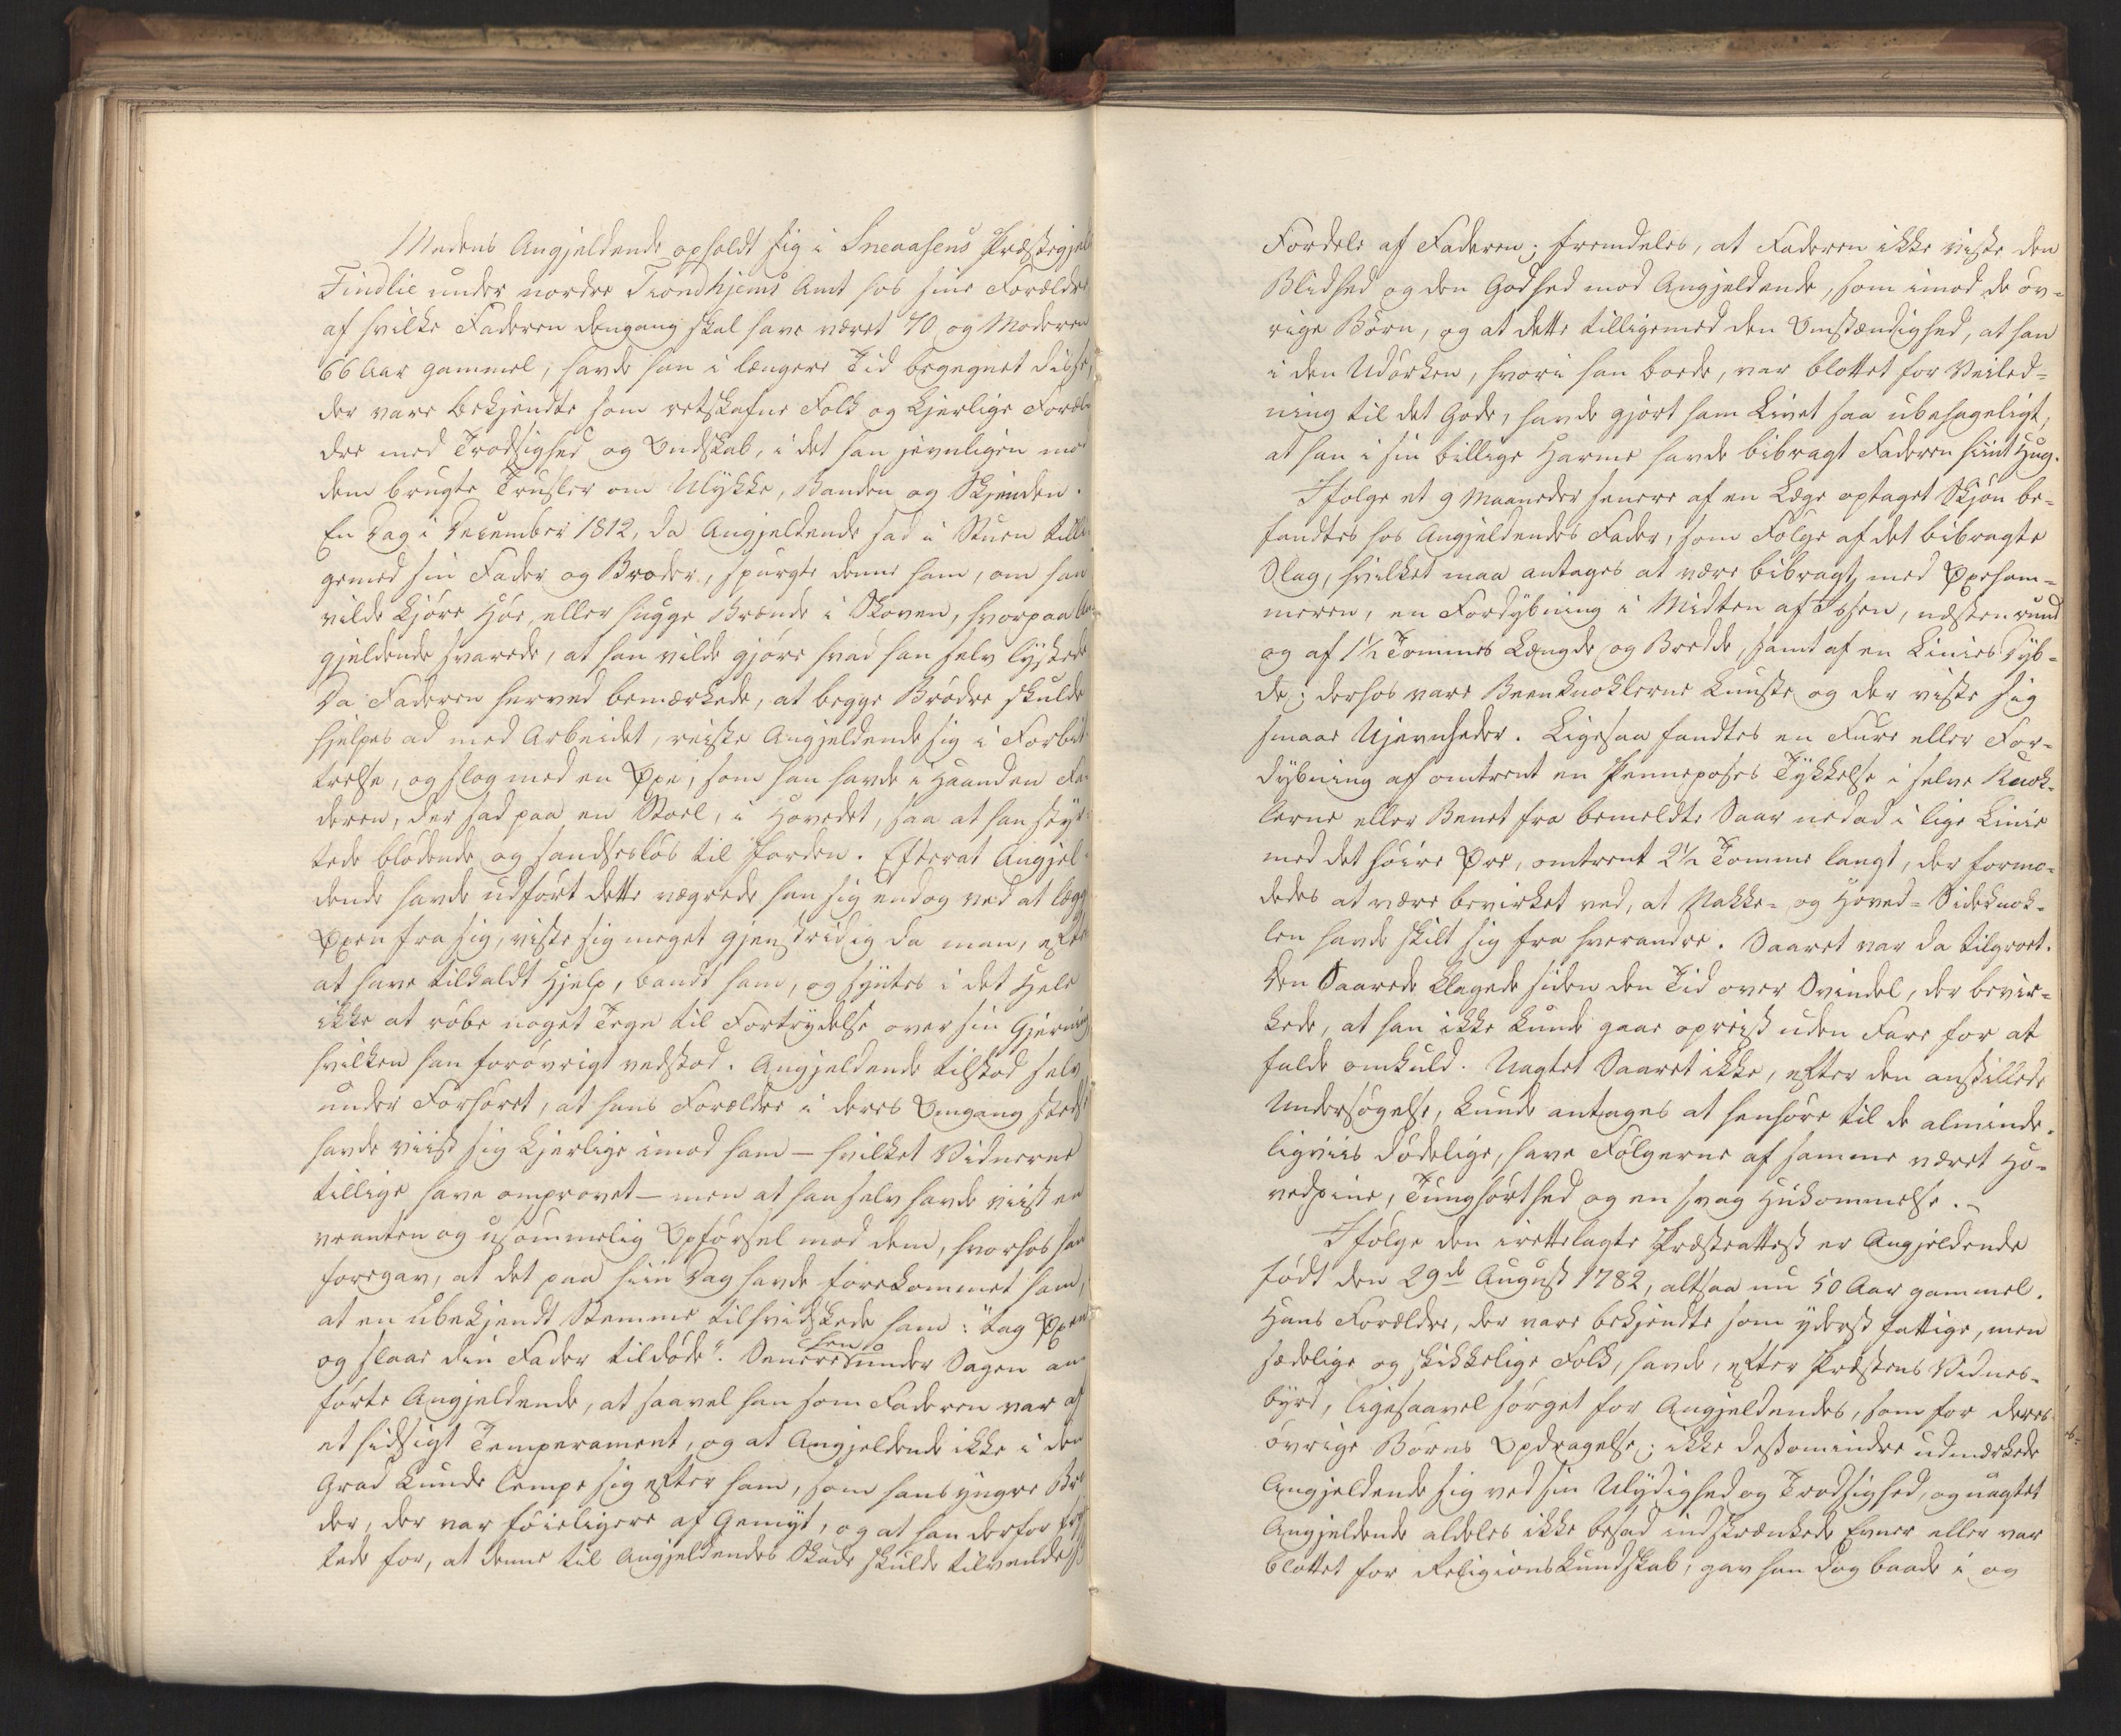 Medens Angjeldende opholdt sig i Sneaasens Præstegjeld
Findlie under nordre Trondhjems Amt hos sine Forældre
af hvilke Faderen dengang skal have været 70 og Moderen
66 Aar gammel, havde han i længere Tid begegnet disse,
der vare bekjendte som retskafne Folk og kjerlige Foræl-
dre med Trodsighed og Ondskab, i det han jevnligen mod
dem brugte Trusler om Ulykke, Banden og Skjenden.
En Dag i December 1812, da Angjeldende sad i Stuen tilli-
gemed sin Fader og Broder, spurgte denne ham, om han
vilde kjøre Høe, eller hugge Brænde i Skoven, hvorpaa An-
gjeldende svarede, at han vilde gjøre hvad han selv lystede
Da Faderen herved bemærkede, at begge Brødre skulde
hjelpes ad med Arbeidet, reiste Angjeldende sig i Forbit-
trelse, og slog med en Øxe, som han havde i Haanden Fa-
deren, der sad paa en Stoel, i Hovedet, saa at han styr-
tede blødende og sandsesløs til Jorden. Efterat Angjel-
dende havde udført dette vægrede han sig endog ved at lægge
Øxen fra sig, viste sig meget gjenstridig da man, efter
at have tilkaldt Hjelp, bandt ham, og syntes i det Hele
ikke at røbe noget Tegn til Fortrydelse over sin Gjerning
hvilken han forøvrigt vedstod. Angjeldende tilstod selv
under Forhøret, at hans Forældre i deres Omgang stedse
havde viist sig kjerlige imod ham – hvilket Vidnerne
tillige have omprovet – men at han selv havde viist en
vranten og usømmelig Opførsel mod dem, hvorhos han
foregav, at det paa hiin Dag havde forekommet ham,
at en ubekjendt Stemme tilhvidskede ham: "tag Øxen
og slaae din Fader tildøde". Senere hen under Sagen an-
førte Angjeldende, at saavel han som Faderen var af
et hidsigt Temperament, og at Angjeldende ikke i den
Grad kunde lempe sig efter ham, som hans yngre Bro-
der, der var føieligere af Gemyt, og at han derfor fryg-
tede for, at denne til Angjeldendes Skade skulde tilvende sig
Fordele af Faderen; fremdeles, at Faderen ikke viste den
Blidhed og den Godhed mod Angjeldende, som imod de øv-
rige Børn, og at dette tilligemed den Omstændighed, at han
i den Udørken, hvori han boede, var blottet for Veiled-
ning til det Gode, havde gjort ham Livet saa ubehageligt,
at han i sin billige Harme havde bibragt Faderen hiint Hug.
Ifølge et 9 Maaneder senere af en Læge optaget Skjøn be-
fandtes hos Angjeldendes Fader, som Følge af det bibragte
Slag, hvilket maa antages at være bibragt med Øxeham-
meren, en Fordybning i Midten af Issen, næsten rund
og af 1½ Tommes Længde og Bredde, samt af en Linies Dyb-
de; derhos vare Beenknoklerne knuste og der viste sig
smaae Ujevnheder. Ligesaa fandtes en Fure eller For-
dybning af omtrent en Penneposes Tykkelse i selve Knok-
lerne eller Benet fra bemeldte Saar nedad i lige Linie
med det høire Øre, omtrent 2½ Tomme langt, der formo-
dedes at være bevirket ved, at Nakke- og Hoved-Sideknok-
len havde skilt sig fra hverandre. Saaret var da tilgroet.
Den Saarede klagede siden den Tid over Svindel, der bevir-
kede, at han ikke kunde gaae opreist uden Fare for at
falde omkuld. Uagtet Saaret ikke, efter den anstillede
Undersøgelse, kunde antages at henhøre til de alminde-
ligviis dødelige, have Følgerne af samme været Ho-
vedpine, Tunghørthed og en svag Hukommelse. –
Ifølge den irettelagte Præsteattest er Angjeldende
født den 29de August 1782, altsaa nu 50 Aar gammel.
Hans Forældre, der vare bekjendte som yderst fattige, men
sædelige og skikkelige Folk, havde, efter Præstens Vidnes-
byrd, ligesaavel sørget for Angjeldendes, som for deres
øvrige Børns Opdragelse; ikke destomindre udmærkede
Angjeldende sig ved sin Ulydighed og Trodsighed, og uagtet
Angjeldende aldeles ikke besad indskrænkede Evner eller var
blottet for Religionskundskab, gav han dog baade i og